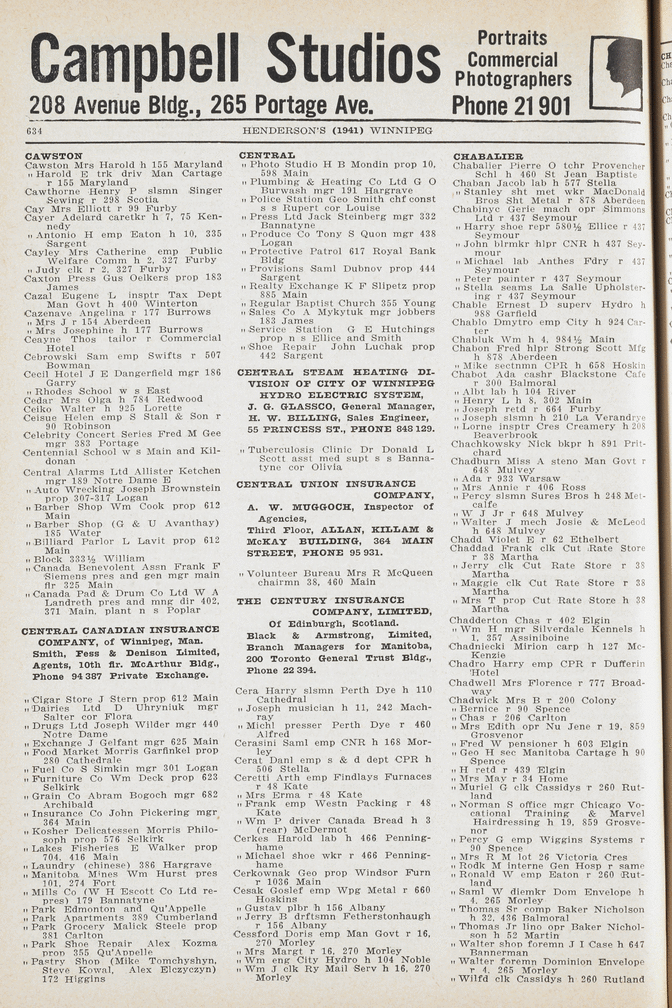 Campbell Studios
208 Avenue Bldg., 265 Portage Ave.
Portraits
Commercial
Photographers
Phone 21 901
634
HENDERSON'S (1941) WINNIPEG
CAWSTON
Cawston Mrs Harold h 155 Maryland
" Harold E trk driv Man Cartage
r 155 Maryland
Cawthorne Henry P slsmn Singer
Sewing r 298 Scotia
Cay Mrs Elliott r 99 Furby
Cayer Adelard caretkr h 7, 75 Ken-
nedy
" Antonio H emp Eaton h 10, 335
Sargent
Cayley Mrs Catherine emp Public
Welfare Comm h 2, 327 Furby
" Judy clk r 2, 327 Furby
Caxton Press Gus Oelkers prop 183
James
Cazal Eugene L insptr Tax Dept
Man Govt h 400 Winterton
Cazenave Angelina r 177 Burrows
" Mrs J r 154 Aberdeen
" Mrs Josephine h 177 Burrows
Ceayne Thos tailor r Commercial
Hotel
Cebrowski Sam emp Swifts r 507
Bowman
Cecil Hotel J E Dangerfield mgr 186
Garry
" Rhodes School w s East
Cedar Mrs Olga h 784 Redwood
Ceiko Walter h 925 Lorette
Ceisue Helen emp S Stall & Son r
90 Robinson
Celebrity Concert Series Fred M Gee
mgr 383 Portage
Centennial School w s Main and Kil-
donan
Central Alarms Ltd Allister Ketchen
mgr 189 Notre Dame E
" Auto Wrecking Joseph Brownstein
prop 307-317 Logan
" Barber Shop Wm Cook prop 612
Main
" Barber Shop (G & U Avanthay)
185 Water
" Billiard Parlor L Lavit prop 612
Main
" Block 333½ William
" Canada Benevolent Assn Frank F
Siemens pres and gen mgr main
flr 325 Main
" Canada Pad & Drum Co Ltd W A
Landreth pres and mng dir 402,
371 Main, plant n s Poplar
CENTRAL CANADIAN INSURANCE
COMPANY, of Winnipeg, Man.
Smith, Fess & Denison Limited,
Agents, 10th flr. McArthur Bldg.,
Phone 94 387 Private Exchange.
" Cigar Store J Stern prop 612 Main
" Dairies Ltd D Uhryniuk mgr
Salter cor Flora
" Drugs Ltd Joseph Wilder mgr 440
Notre Dame
" Exchange J Gelfant mgr 625 Main
" Food Market Morris Garfinkel prop
280 Cathedrale
" Fuel Co S Simkin mgr 301 Logan
" Furniture Co Wm Deck prop 623
Selkirk
" Grain Co Abram Bogoch mgr 682
Archibald
" Insurance Co John Pickering mgr
364 Main
" Kosher Delicatessen Morris Philo-
soph prop 576 Selkirk
" Lakes Fisheries E Walker prop
704, 416 Main
" Laundry (chinese) 386 Hargrave
" Manitoba Mines Wm Hurst pres
101, 274 Fort
" Mills Co (W H Escott Co Ltd re-
pres) 179 Bannatyne
" Park Edmonton and Qu'Appelle
" Park Apartments 389 Cumberland
" Park Grocery Malick Steele prop
381 Carlton
" Park Shoe Repair Alex Kozma
prop 355 Qu'Appelle
" Pastry Shop (Mike Tomchyshyn,
Steve Kowal, Alex Elczyczyn)
172 Higgins
CENTRAL
" Photo Studio H B Mondin prop 10,
598 Main
" Plumbing & Heating Co Ltd G O
Burwash mgr 191 Hargrave
" Police Station Geo Smith chf const
s s Rupert cor Louise
" Press Ltd Jack Steinberg mgr 332
Bannatyne
" Produce Co Tony S Quon mgr 438
Logan
" Protective Patrol 617 Royal Bank
Bldg
" Provisions Saml Dubnov prop 444
Sargent
" Realty Exchange K F Slipetz prop
885 Main
" Regular Baptist Church 355 Young
" Sales Co A Mykytuk mgr jobbers
183 James
" Service Station G E Hutchings
prop n s Ellice and Smith
" Shoe Repair John Luchak prop
442 Sargent
CENTRAL STEAM HEATING DI-
VISION OF CITY OF WINNIPEG
HYDRO ELECTRIC SYSTEM,
J. G. GLASSCO, General Manager,
H. W. BILLING, Sales Engineer,
55 PRINCESS ST., PHONE 848 129.
" Tuberculosis Clinic Dr Donald L
Scott asst med supt s s Banna-
tyne cor Olivia
CENTRAL UNION INSURANCE
COMPANY,
A. W. MUGGOCH, Inspector of
Agencies,
Third Floor, ALLAN, KILLAM &
McKAY BUILDING, 364 MAIN
STREET, PHONE 95 931.
" Volunteer Bureau Mrs R McQueen
chairmn 38, 460 Main
THE CENTURY INSURANCE
COMPANY, LIMITED,
Of Edinburg, Scotland.
Black & Armstrong, Limited,
Branch Managers for Manitoba,
200 Toronto General Trust Bldg.,
Phone 22 394.
Cera Harry slsmn Perth Dye h 110
Cathedral
" Joseph musician h 11, 242 Mach-
ray
" Michl presser Perth Dye r 460
Alfred
Cerasini Saml emp CNR h 168 Mor-
ley
Cerat Danl emp s & d dept CPR h
506 Stella
Ceretti Arth emp Findlays Furnaces
r 48 Kate
" Mrs Erma r 48 Kate
" Frank emp Westn Packing r 48
Kate
" Wm P driver Canada Bread h 3
(rear) McDermot
Cerkes Harold lab h 466 Penning-
hame
" Michael shoe wkr r 466 Penning-
hame
Cerkownak Geo prop Windsor Furn
r 1036 Main
Cesak Goslef emp Wpg Metal r 660
Hoskins
" Gustav plbr h 156 Albany
" Jerry B drftsmn Fetherstonhaugh
r 156 Albany
Cessford Doris emp Man Govt r 16,
270 Morley
" Mrs Margt r 16, 270 Morley
" Wm eng City Hydro h 104 Noble
" Wm J clk Ry Mail Serv h 16, 270
Morley
CHABALIER
Chaballer Pierre O tchr Provencher
Schl h 460 St Jean Baptiste
Chaban Jacob lab h 577 Stella
" Stanley sht met wkr MacDonald
Bros Sht Metal r 878 Aberdeen
Chabinyc Gerlic mach opr Simmons
Ltd r 437 Seymour
" Harry shoe repr 580½ Ellice r 437
Seymour
" John blrmkr hlpr CNR h 437 Sey-
mour
" Michael lab Anthes Fdry r 437
Seymour
" Peter painter r 437 Seymour
" Stella seams La Salle Upholster-
ing r 437 Seymour
Chable Ernest D superv Hydro h
988 Garfield
Chablo Dmytro emp City h 924 Car-
ter
Chabluk Wm h 4, 984½ Main
Chabon Fred hlpr Strong Scott Mfg
h 878 Aberdeen
" Mike sectnmn CPR h 658 Hoskin
Chabot Ada cashr Blackstone Cafe
r 300 Balmoral
" Albt lab h 104 River
" Henry L h 8, 302 Main
" Joseph retd r 664 Furby
" Joseph slsmn h 210 La Verandrye
" Lorne insptr Cres Creamery h 208
Beaverbrook
Chachkowsky Nick bkpr h 891 Prit-
chard
Chadburn Miss A steno Man Govt r
648 Mulvey
" Ada r 933 Warsaw
" Mrs Annie r 406 Ross
" Percy slsmn Sures Bros h 248 Met-
calfe
" W J Jr r 648 Mulvey
" Walter J mech Josie & McLeod
h 648 Mulvey
Chadd Violet E r 62 Ethelbert
Chaddad Frank clk Cut Rate Store
r 38 Martha
" Jerry clk Cut Rate Store r 38
Martha
" Maggie clk Cut Rate Store r 38
Martha
" Mrs T prop Cut Rate Store h 38
Martha
Chadderton Chas r 402 Elgin
" Wm H mgr Silverdale Kennels h
1, 357 Assiniboine
Chadniecki Mirion carp h 127 Mc-
Kenzie
Chadro Harry emp CPR r Dufferin
Hotel
Chadwell Mrs Florence r 777 Broad-
way
Chadwick Mrs B r 200 Colony
" Bernice r 90 Spence
" Chas r 206 Carlton
" Mrs Edith opr Nu Jene r 19, 859
Grosvenor
" Fred W pensioner h 603 Elgin
" Geo H sec Manitoba Cartage h 90
Spence
" H retd r 439 Elgin
" Mrs May r 34 Home
" Muriel G clk Cassidys r 260 Rut-
land
" Norman S office mgr Chicago Vo-
cational Training & Marvel
Hairdressing h 19, 859 Grosve-
nor
" Percy G emp Wiggins Systems r
90 Spence
" Mrs R M lot 26 Victoria Cres
" Rodk M interne Gen Hosp r same
" Ronald W emp Eaton r 260 Rut-
land
" Saml W diemkr Dom Envelope h
4, 265 Morley
" Thomas Sr comp Baker Nicholson
h 32, 436 Balmoral
" Thomas Jr lino opr Baker Nichol-
son h 52 Martin
" Walter shop foremn J I Case h 647
Bannerman
" Walter foremn Dominion Envelope
r 4, 265 Morley
" Wilfd clk Cassidys h 260 Rutland